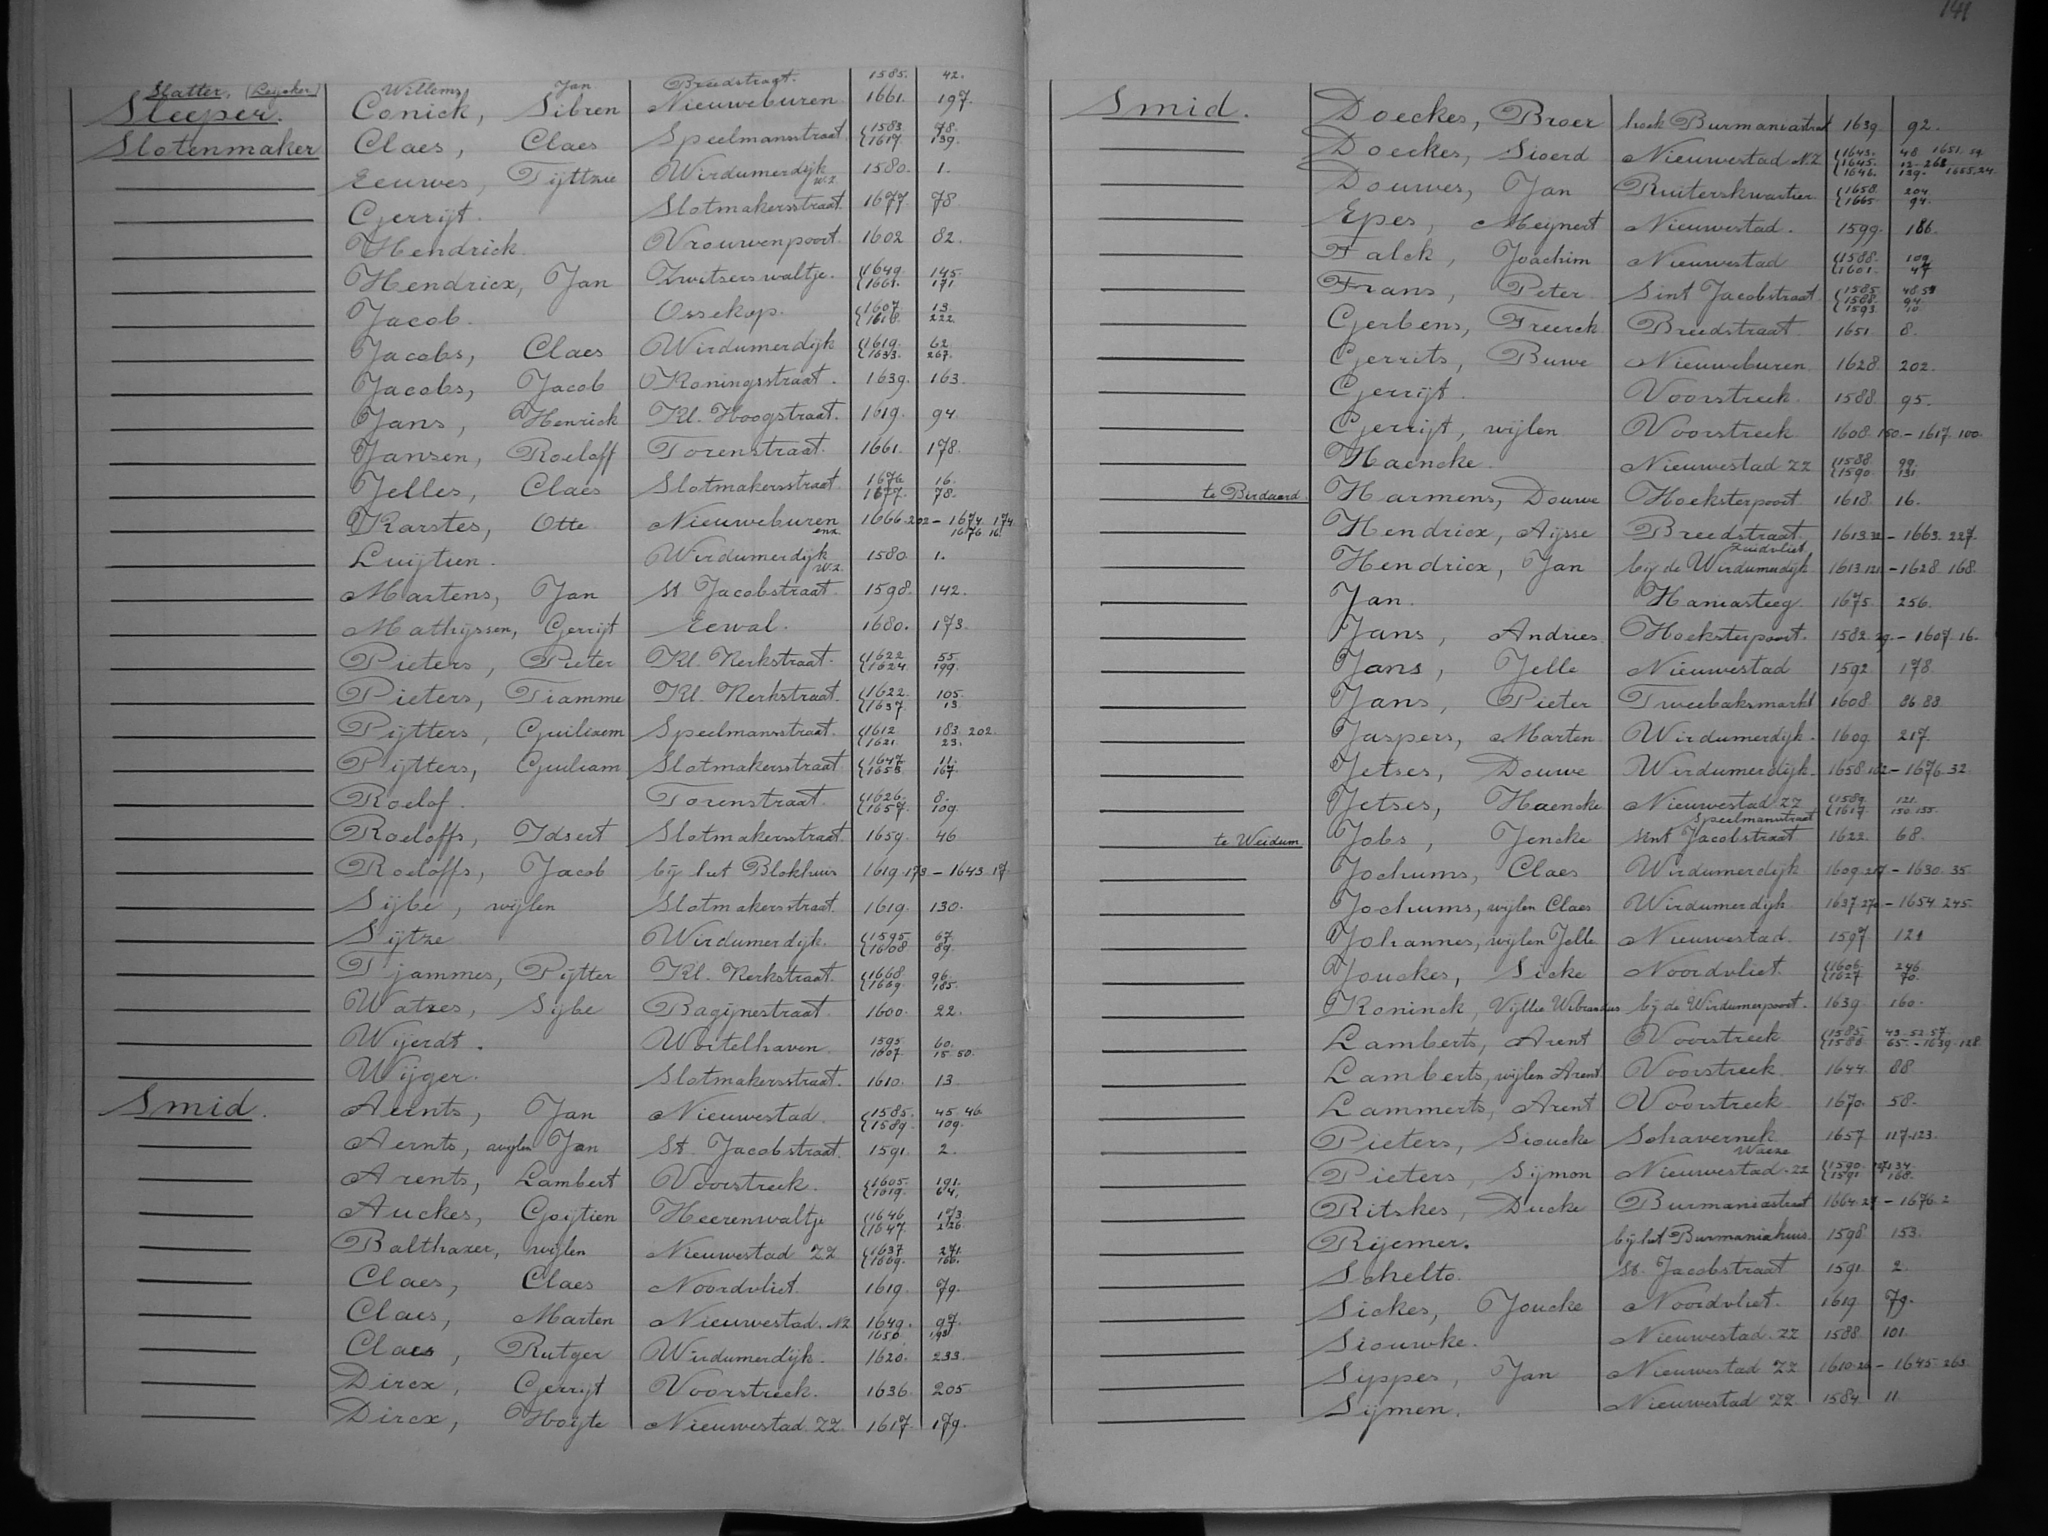 141
Slatter, (Leyoker) Willems, Jan Breedstraat. 1585. 42.
Sleeper. Conick, Sibren Nieuweburen 1661. 197.
Slotenmaker Claes, Claes Speelmansstraat 1583 78. 1617. 139.
Eeuwes, Tijttzie Wirdumerdijk W.Z. 1580. 1.
Gerrijt. Slotmakersstraat. 1677. 78
Hendrick. Vrouwenpoort. 1602 82.
Hendricx, Jan Zwitserswaltje. 1649. 145. 1661. 171
Jacob. Ossekop. 1607. 13. 1618. 222.
Jacobs, Claes Wirdumerdijk 1619. 62. 1633. 267.
Jacobs, Jacob Koningsstraat. 1639. 163.
Jans, Henrick Kl. Hoogstraat. 1619. 94.
Jansen, Roeloff Torenstraat. 1661. 178.
Jelles, Claes Slotmakersstraat 1676 16. 1677. 78.
Karstes, Otte Nieuweburen enz. 1666. 202 - 1674. 174. 1676 16.
Luijtien. Wirdumerdijk W.Z. 1580 1.
Martens, Jan St. Jacobstraat. 1598. 142.
Mathijssen, Gerrijt Eewal. 1680. 173.
Pieters, Pieter Kl. Kerkstraat. 1622 55. 1624. 199.
Pieters, Tiamme Kl. Kerkstraat. 1622. 105. 1637. 13.
Pijtters, Guiliaem Speelmansstraat. 1612 183. 202. 1621. 23.
Pijtters, Guiliam Slotmakersstraat 1647 11. 1658. 167.
Roelof. Torenstraat. 1626. 8. 1657. 109.
Roeloffs, Idsert Slotmakersstraat. 1659. 46
Roeloffs, Jacob bij het Blokhuis 1619. 173 - 1643. 17.
Sijbe, wijlen Slotmakersstraat. 1619. 130.
Sijtze Wirdumerdijk. 1595 67. 1608 89.
Tjammes, Pijtter Kl. Kerkstraat. 1668 96. 1669. 185.
Watzes, Sijbe Bagijnestraat. 1600. 22.
Wijerdt. Wortelhaven. 1595. 60. 1607 15. 50.
Wijger. Slotmakersstraat. 1610. 13
Smid. Aernts, Jan Nieuwestad. 1585. 45. 46. 1589. 109.
Aernts, wijlen Jan St. Jacobstraat. 1591. 2.
Arents, Lambert Voorstreek. 1605. 191. 1619. 64.
Auckes, Goijtien Heerenwaltje 1646 173. 1647 226.
Balthazer, wijlen Nieuwestad ZZ 1637 271. 1669. 166.
Claes, Claes Noordvliet. 1619. 79.
Claes, Marten Nieuwestad. NZ 1649. 97. 1650
Claes, Rutger Wirdumerdijk. 1620. 233.
Dircx, Gerrijt Voorstreek. 1636. 205
Dircx, Hoijte Nieuwestad. ZZ. 1617. 179.
Smid. Doeckes, Broer hoek Burmaniastraat 1639 92.
Doeckes, Sioerd Nieuwestad NZ 1643. 48 1651. 1645. 12. 268 1655. 24. 1646. 129.
Douwes, Jan Ruiterskwartier 1658 204. 1665 94.
Epes, Meijnert Nieuwestad. 1599. 186.
Falck, Joachim Nieuwestad 1588. 109 1601. 47
Frans, Peter Sint Jacobstraat 1585 48. 59 1588. 94. 1593. 10
Gerbens, Freerck Breedstraat 1651. 8.
Gerrits, Buwe Nieuweburen 1628 202.
Gerrijt. Voorstreek. 1588. 95.
Gerrijt, wijlen Voorstreek 1608. 150. - 1617. 100.
Haencke. Nieuwestad ZZ 1588 99. 1590 131
te Birdaard Harmens, Douwe Hoeksterpoort 1618. 16.
Hendricx, Aijsse Breedstraat. 1613. 32 - 1663. 227.
Hendricx, Jan Zuidvliet bij de Wirdumerdijk 1613. 121. - 1628. 168.
Jan. Haniasteeg. 1675. 256.
Jans, Andries Hoeksterpoort. 1582. 29. - 1607. 16.
Jans, Jelle Nieuwestad 1592 178.
Jans, Pieter Tweebaksmarkt 1608 86. 88.
Jaspers, Marten Wirdumerdijk. 1609. 217.
Jetses, Douwe Wirdumerdijk. 1658. 162 - 1676. 32.
Jetses, Haencke Nieuwestad ZZ 1589. 121. 1617 150. 155.
te Weidum Jobs, Jencke Speelmansstraat Sint Jacobstraat 1622. 68.
Jochums, Claes Wirdumerdijk 1609. 217 - 1630. 35.
Jochums, wijlen Claes Wirdumerdijk 1637. 270 - 1654. 245.
Johannes, wijlen Jelle Nieuwestad. 1597 121
Jouckes, Sicke Noordvliet. 1606. 246. 1627 70.
Koninck, Vijllie Wibrandus bij de Wirdumerpoort. 1639. 160.
Lamberts, Arent Voorstreek 1585. 43. 52. 57. 1586 65. - 1639. 128.
Lamberts, wijlen Arent Voorstreek. 1644. 88.
Lammerts, Arent Voorstreek. 1670. 58.
Pieters, Sioucke Schavernek 1657 117. 123.
Pieters, Sijmon Waeze Nieuwestad. ZZ 1590 134. 1591 168.
Ritskes, Ducke Burmaniastraat 1664. 27 - 1676. 2
Rijemer. bij het Burmaniahuis 1598 153.
Schelto. St. Jacobstraat 1591 2.
Sickes, Joucke Noordvliet. 1619 79.
Siouwke. Nieuwestad. ZZ 1588. 101.
Sippes, Jan Nieuwestad ZZ 1610. 26 - 1645. 263.
Sijmen. Nieuwestad ZZ. 1584. 11